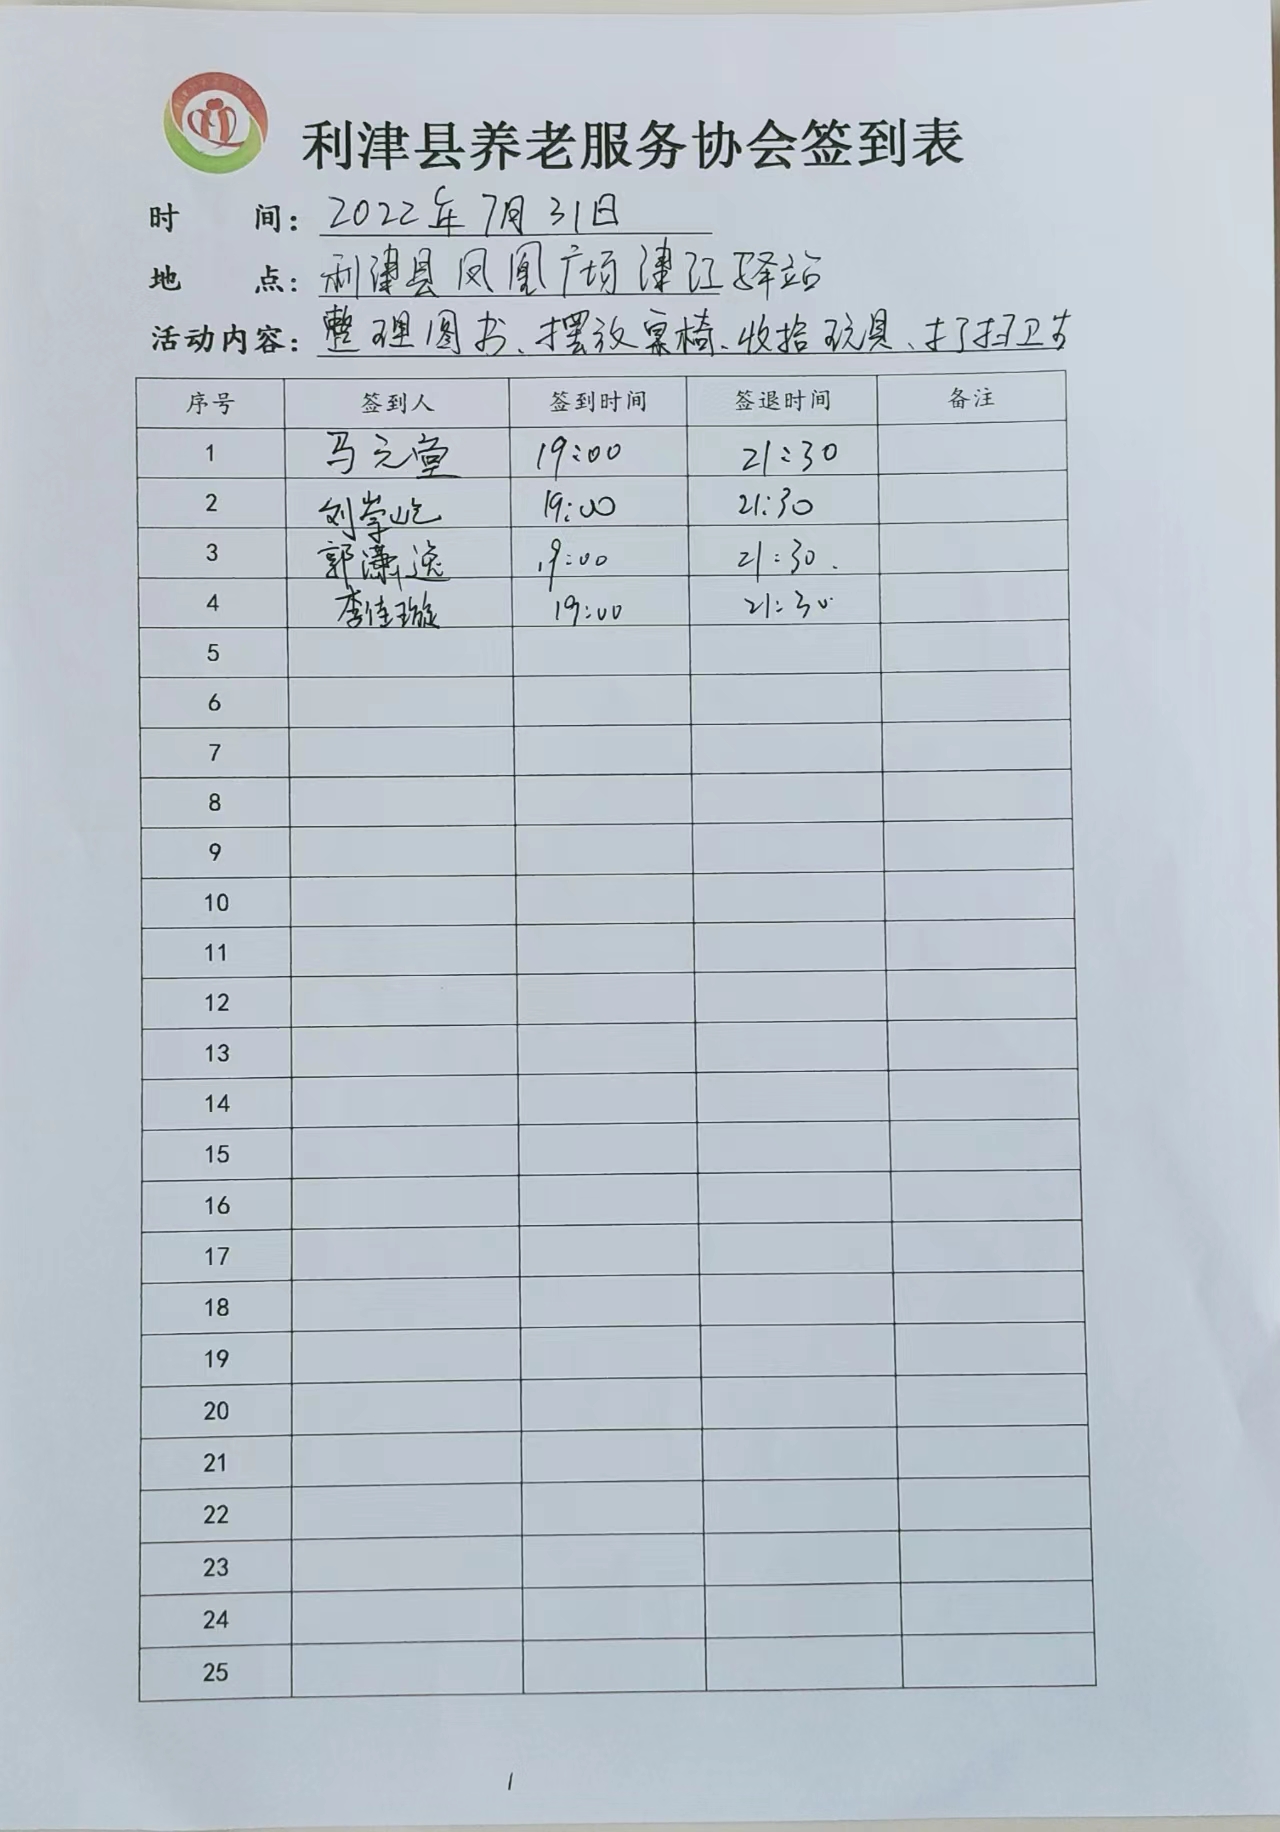 利津县养老服务协会签到表
时 间: 2022年7月31日
地 点: 利津县凤凰广场津江驿站
活动内容: 整理图书、摆放桌椅、收拾玩具、打扫卫生
序号 签到人 签到时间 签退时间 备注
1 马元堂 19:00 21:30
2 刘学屹 19:00 21:30
3 郭潇逸 19:00 21:30.
4 李佳璇 19:00 21:30
5
6
7
8
9
10
11
12
13
14
15
16
17
18
19
20
21
22
23
24
25
1